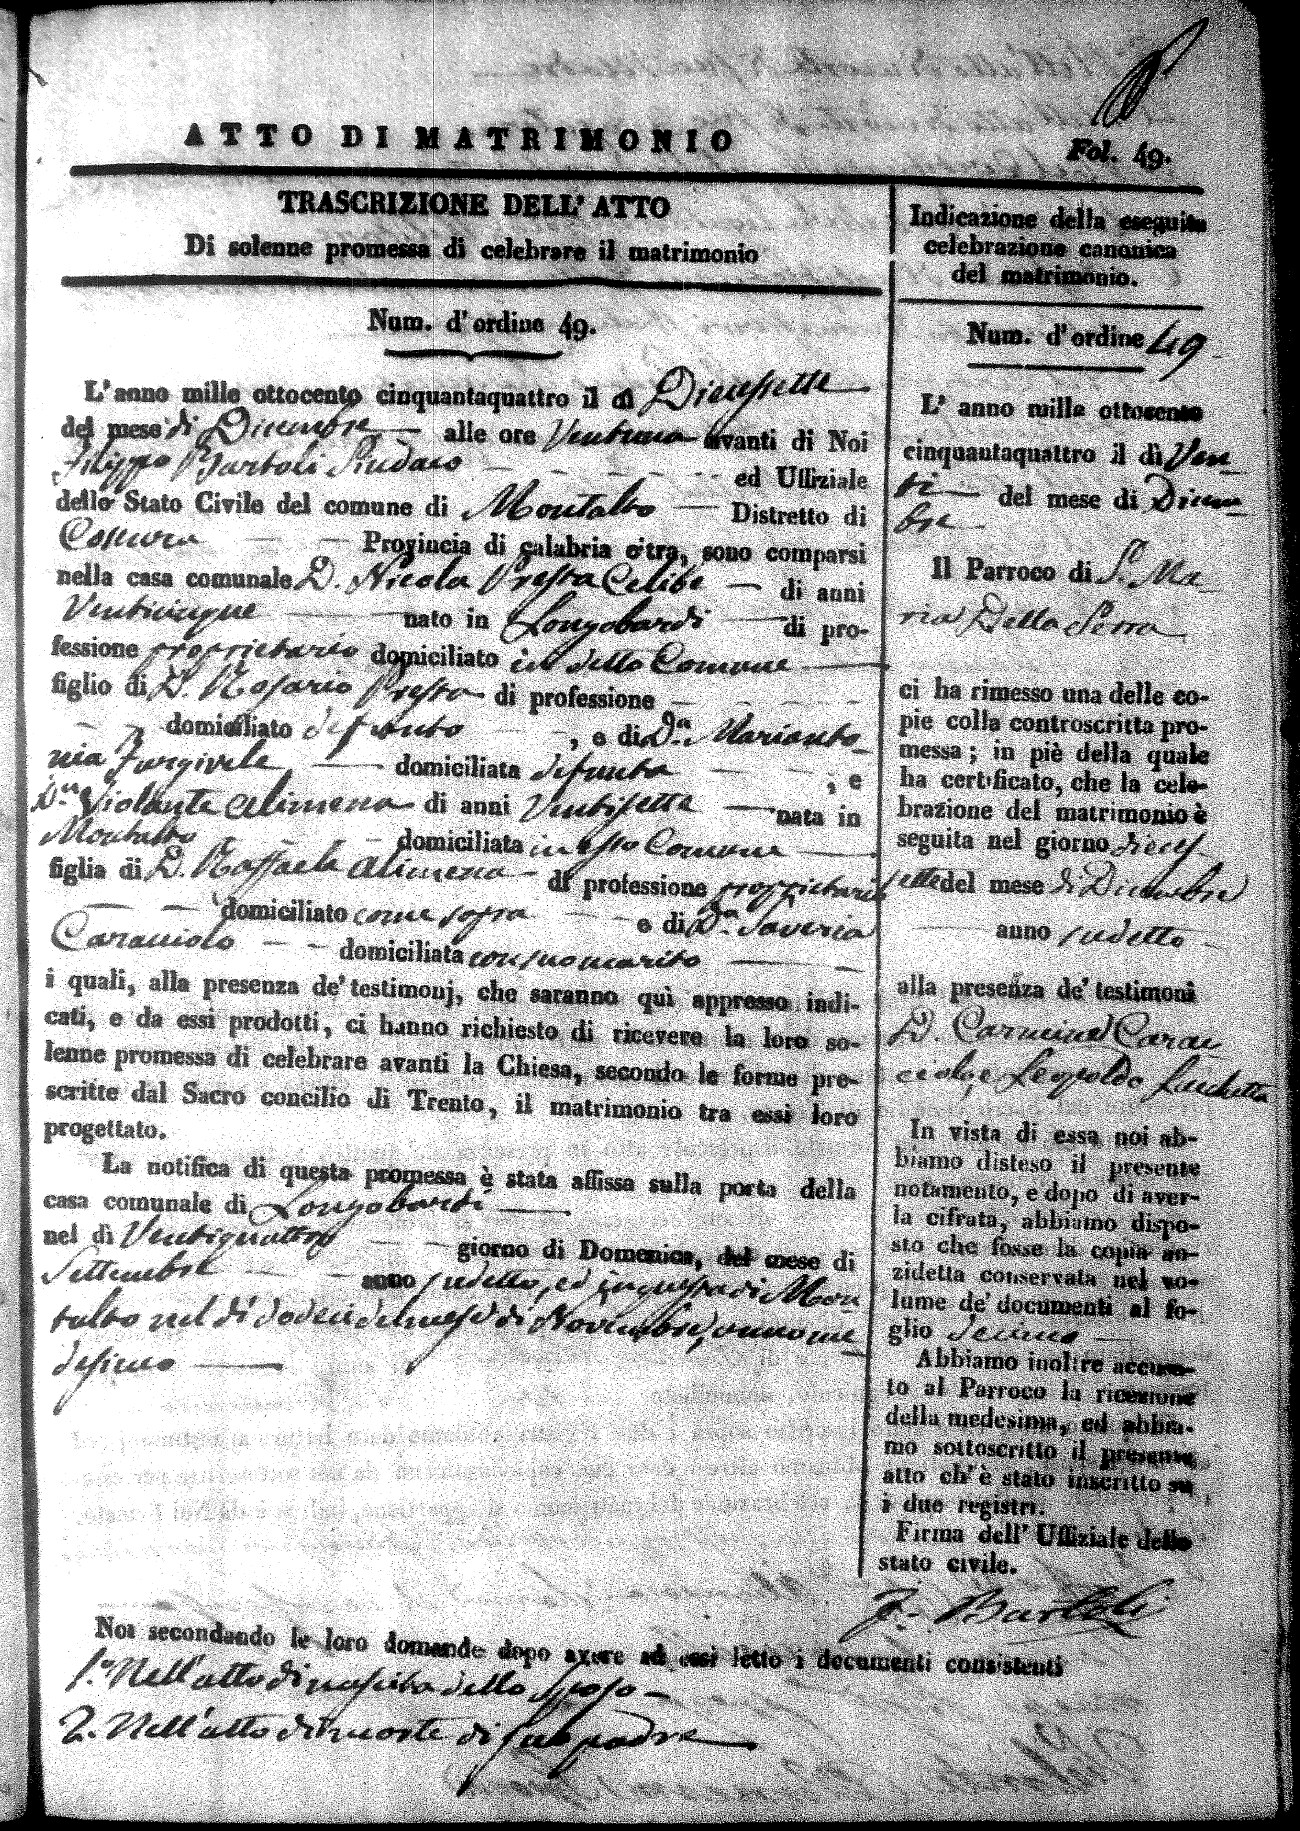 ATTO DI MATRIMONIO
Fol. 49.
TRASCRIZIONE DELL' ATTO
Di solenne promessa di celebrare il matrimonio
Num. d'ordine 49.
L'anno mille ottocento cinquantaquattro il dì Diecessette
del mese di Dicembre alle ore Ventuna avanti di Noi
Filippo Bartoli Sindaco ed Uffiziale
dello Stato Civile del comune di Montalto Distretto di
Cosenza Provincia di Calabria citra, sono comparsi
nella casa comunale D. Nicola Presta Celibe di anni
Venticinque nato in Longobardi di pro-
fessione proprietario domiciliato in detto Comune
figlio di D. Rosario Presta di professione
domiciliato defunto , e di D.na Marianto-
nia Furgivele domiciliata defunta , e
D.na Violante Alimena di anni Ventisette nata in
Montalto domiciliata in esso Comune
figlia di D. Raffaele Alimena di professione proprietario
domiciliato come sopra e di D.a Saveria
Caracciolo domiciliata con suo marito
i quali, alla presenza de' testimonj, che saranno quì appresso indi-
cati, e da essi prodotti, ci hanno richiesto di ricevere la loro so-
lenne promessa di celebrare avanti la Chiesa, secondo le forme pre-
scritte dal Sacro concilio di Trento, il matrimonio tra essi loro
progettato.
La notifica di questa promessa è stata affissa sulla porta della
casa comunale di Longobardi
nel dì Ventiquattro giorno di Domenica, del mese di
Settembre anno sudetto, ed in questa di Mon
talto nel dì dodici del mese di Novembre, anno me
desimo
Noi secondando le loro domande dopo avere ad essi letto i documenti consistenti
1.° Nell'atto di nascita dello sposo
2. Nell'atto di morte di suo padre
Indicazione della eseguita
celebrazione canonica
del matrimonio.
Num. d'ordine 49
L' anno mille ottocento
cinquantaquattro il dì Ven-
ti del mese di Dicem-
bre
Il Parroco di S.a Ma
ria Della Serra
ci ha rimesso una delle co-
pie colla controscritta pro-
messa; in piè della quale
ha certificato, che la cele-
brazione del matrimonio è
seguita nel giorno dieces-
sette del mese di Dicembre
anno sudetto
alla presenza de' testimoni
D. Carmine Carac
ciolo, e Leopoldo
In vista di essa noi ab-
biamo disteso il presente
notamento, e dopo di aver-
la cifrata, abbiamo dispo-
sto che fosse la copia an-
zidetta conservata nel vo-
lume de' documenti al fo-
glio decimo
Abbiamo inoltre accusa-
to al Parroco la ricezione
della medesima, ed abbia-
mo sottoscritto il presente
atto ch'è stato inscritto su
i due registri.
Firma dell' Uffiziale dello
stato civile.
F. Bartoli